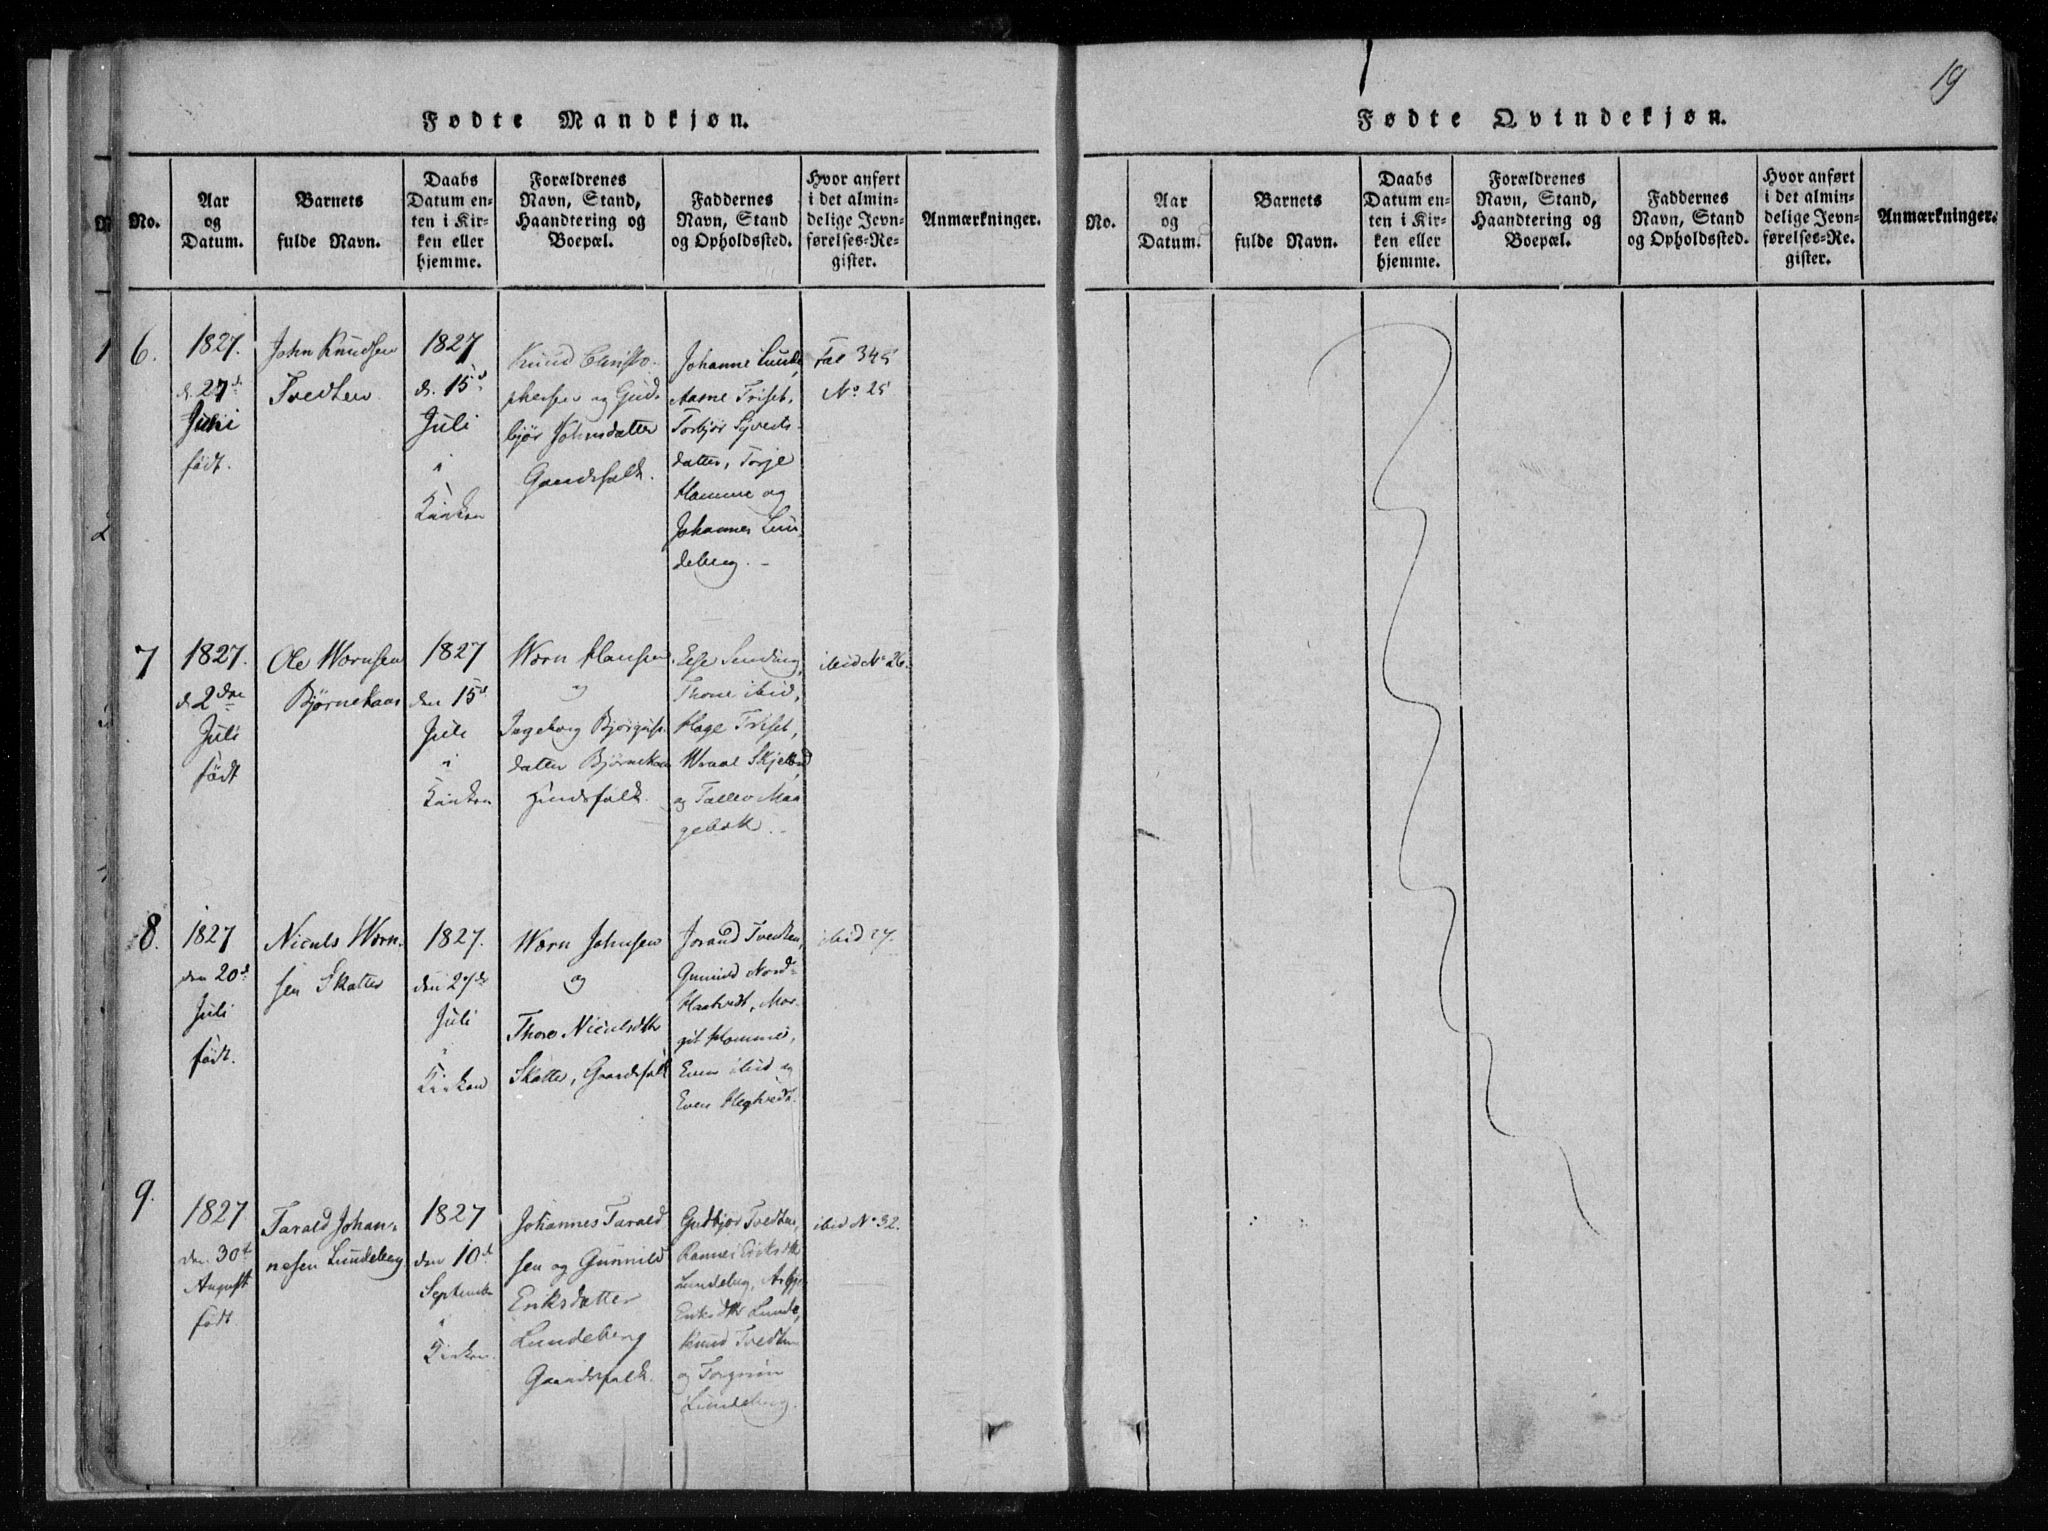 19
Fødte Mandkjøn.
No.
Aar
og
Datum.
Barnets
fulde Navn.
Daabs
Datum en-
ten i Kir-
ken eller
hjemme.
Forældrenes
Navn, Stand,
Haandtering og
Boepæl.
Faddernes
Navn, Stand
og Opholdssted.
Hvor anført
i det almin-
delige Jevn-
førelses-Re-
gister.
Anmærkninger.
6.
1827.
d. 27d
Juni
født.
John Knudsen
Tvedten
1827
d. 15d
Juli
i
Kirken
Knud Christo-
phersen og Gud-
bjør Johnsdatter
Gaardsfolk.
Johanne Lunde,
Aasne Triset,
Torbjør Syverts-
datter, Torje
Homme og
Johannes Lun-
deberg.
Fol 345
No 25
7
1827.
d. 2den
Juli
født
Ole Wærnsen
Bjørnekaas
1827
den 15d
Juli
i
Kirken
Wærn Hansen
og
Ingeborg
datter
Huusfolk.
Else Sending,
Thone ibid,
Hæge Triset,
Wraal
og Tallev Maa-
gebæk.
ibid No 26.
8.
1827
den 20d
Juli
født.
Niculs Wærn-
sen Skatter
1827.
den 27de
Juli
i
Kirken
Wærn Johnsen
og
Thore Niculsdtr
Skatter, Gaardsfolk
Jorand Tvedten,
Gunild Nord-
Haatvedt, Mar-
git Homme,
Even ibid og
Even
ibid 27.
9.
1827
den 30t
August
født
Tarald Johan-
nesen Lundeberg
1827
den 10d
September
i
Kirken.
Johannes Tarald
sen og Gunnild
Eriksdatter
Lundeberg
Gaardsfolk.
Gudbjør Tvedten,
Eriksdtr
Lundeberg,
Eriksdtr Lunde,
Knud Tvedten
og
Lundeberg.
ibid No 32.
Fødte Qvindekjøn.
No.
Aar
og
Datum.
Barnets
fulde Navn.
Daabs
Datum en-
ten i Kir-
ken eller
hjemme.
Forældrenes
Navn, Stand,
Haandtering og
Boepæl.
Faddernes
Navn, Stand
og Opholdssted.
Hvor anført
i det almin-
delige Jevn-
førelses-Re.
gister.
Anmærkninger.